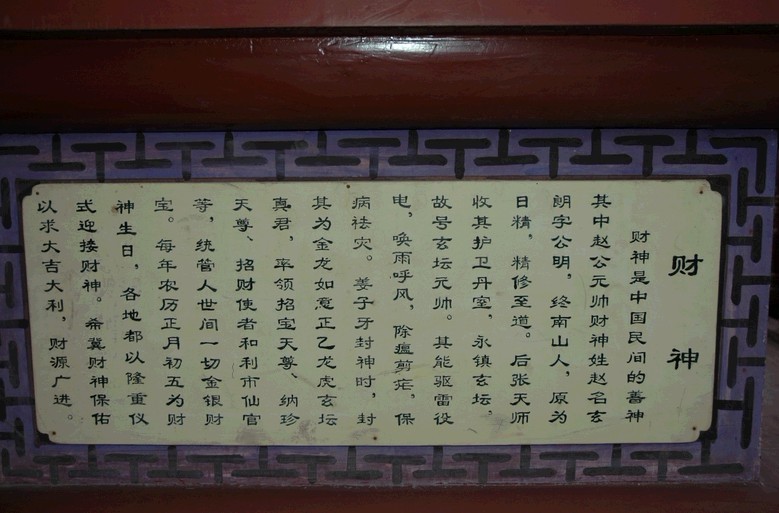 财神
财神是中国民间的善神
其中赵公元帅财神姓赵名玄
朗字公明，终南山人，原为
日精，精修至道。后张天师
收其护卫丹室，永镇玄坛，
故号玄坛元帅。其能驱雷役
电，唤雨呼风，除瘟剪疟，保
病祛灾。姜子牙封神时，封
其为金龙如意正乙龙虎玄坛
真君，率领招宝天尊、纳珍
天尊、招财使者和利市仙官
等，统管人世间一切金银财
宝。每年农历正月初五为财
神生日，各地都以隆重仪
式迎接财神。希冀财神保佑
以求大吉大利，财源广进。